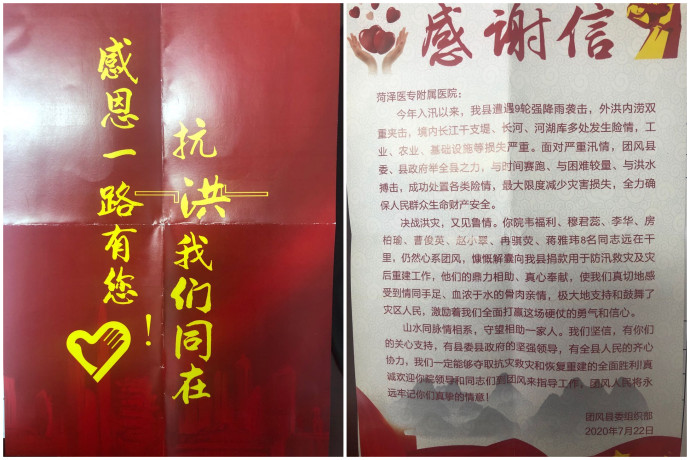 感恩一路有您！
抗洪我们同在
感谢信
菏泽医专附属医院：
今年入汛以来，我县遭遇9轮强降雨袭击，外洪内涝双
重夹击，境内长江干支堤、长河、河湖库多处发生险情，工
业、农业、基础设施等损失严重。面对严重汛情，团风县
委、县政府举全县之力，与时间赛跑、与困难较量、与洪水
搏击，成功处置各类险情，最大限度减少灾害损失，全力确
保人民群众生命财产安全。
决战洪灾，又见鲁情。你院韦福利、穆君蕊、李华、房
柏瑜、曹俊英、赵小翠、冉骐荧、蒋雅玮8名同志远在千
里，仍然心系团风，慷慨解囊向我县捐款用于防汛救灾及灾
后重建工作，他们的鼎力相助、真心奉献，使我们真切地感
受到情同手足、血浓于水的骨肉亲情，极大地支持和鼓舞了
灾区人民，激励着我们全面打赢这场硬仗的勇气和信心。
山水同脉情相系，守望相助一家人。我们坚信，有你们
的关心支持，有县委县政府的坚强领导，有全县人民的齐心
协力，我们一定能够夺取抗灾救灾和恢复重建的全面胜利！真
诚欢迎你院领导和同志们到团风来指导工作，团风人民将永
远牢记你们真挚的情意！
团风县委组织部
2020年7月22日